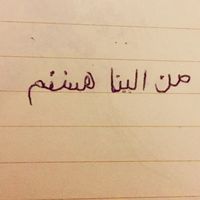 من الینا هستم